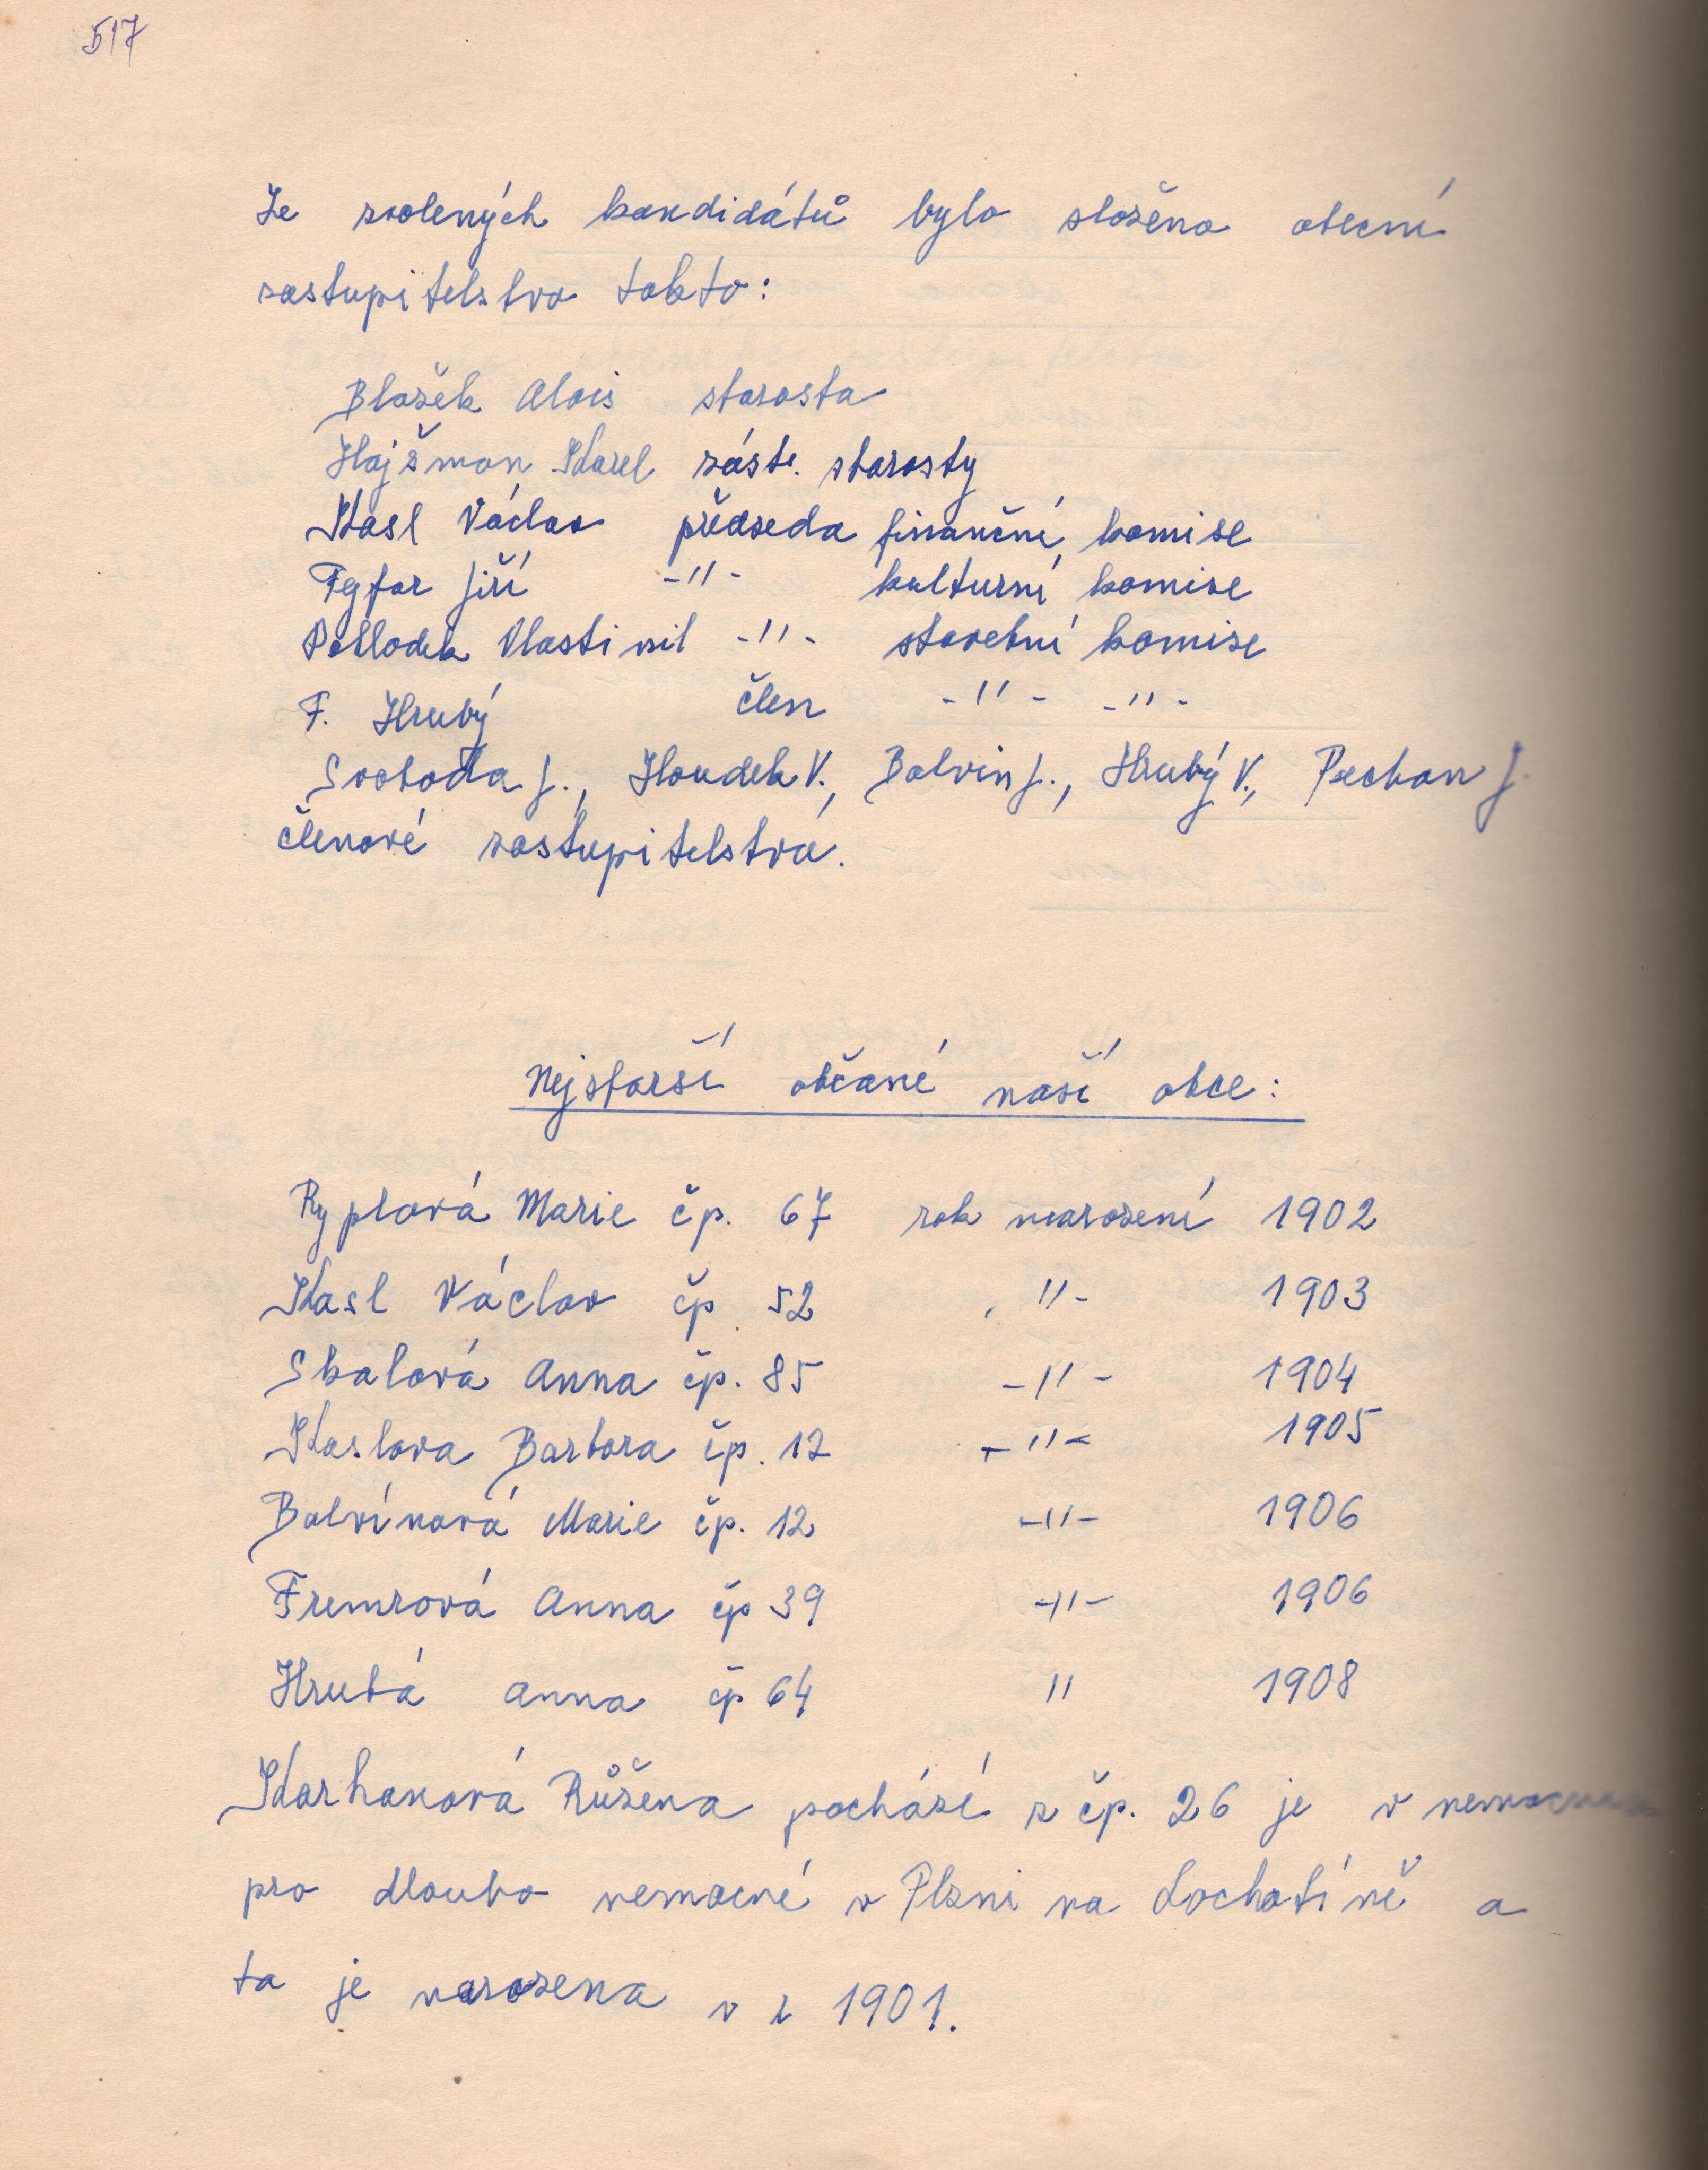 517
Ze zvolených kandidátů bylo složeno obecní
zastupitelstvo takto:
Blažek Alois starosta
Hajšman Karel zást. starosty
Kasl Václav předseda finanční komise
Fgfar Jiří -"- kulturní komise
Pohlodek Vlastimil -"- stavební komise
F. Hrubý člen -"- -"-
Svoboda J., Houdek V., Balvín J., Hrubý V., Pechan J.
členové zastupitelstva.
Nejstarší občané naší obce:
Ryplová Marie čp. 67 rok narození 1902
Kasl Václav čp 52 -"- 1903
Skalová Anna čp. 85 -"- 1904
Kaslova Barbora čp. 12 -"- 1905
Balvínová Marie čp. 12 -"- 1906
Fremrová Anna čp 39 -"- 1906
Hrubá Anna čp 64 " 1908
Karhanová Růžena pochází z čp. 26 je v
pro dlouho nemocné v Plzni na Lochotíně a
ta je narozena v r 1901.